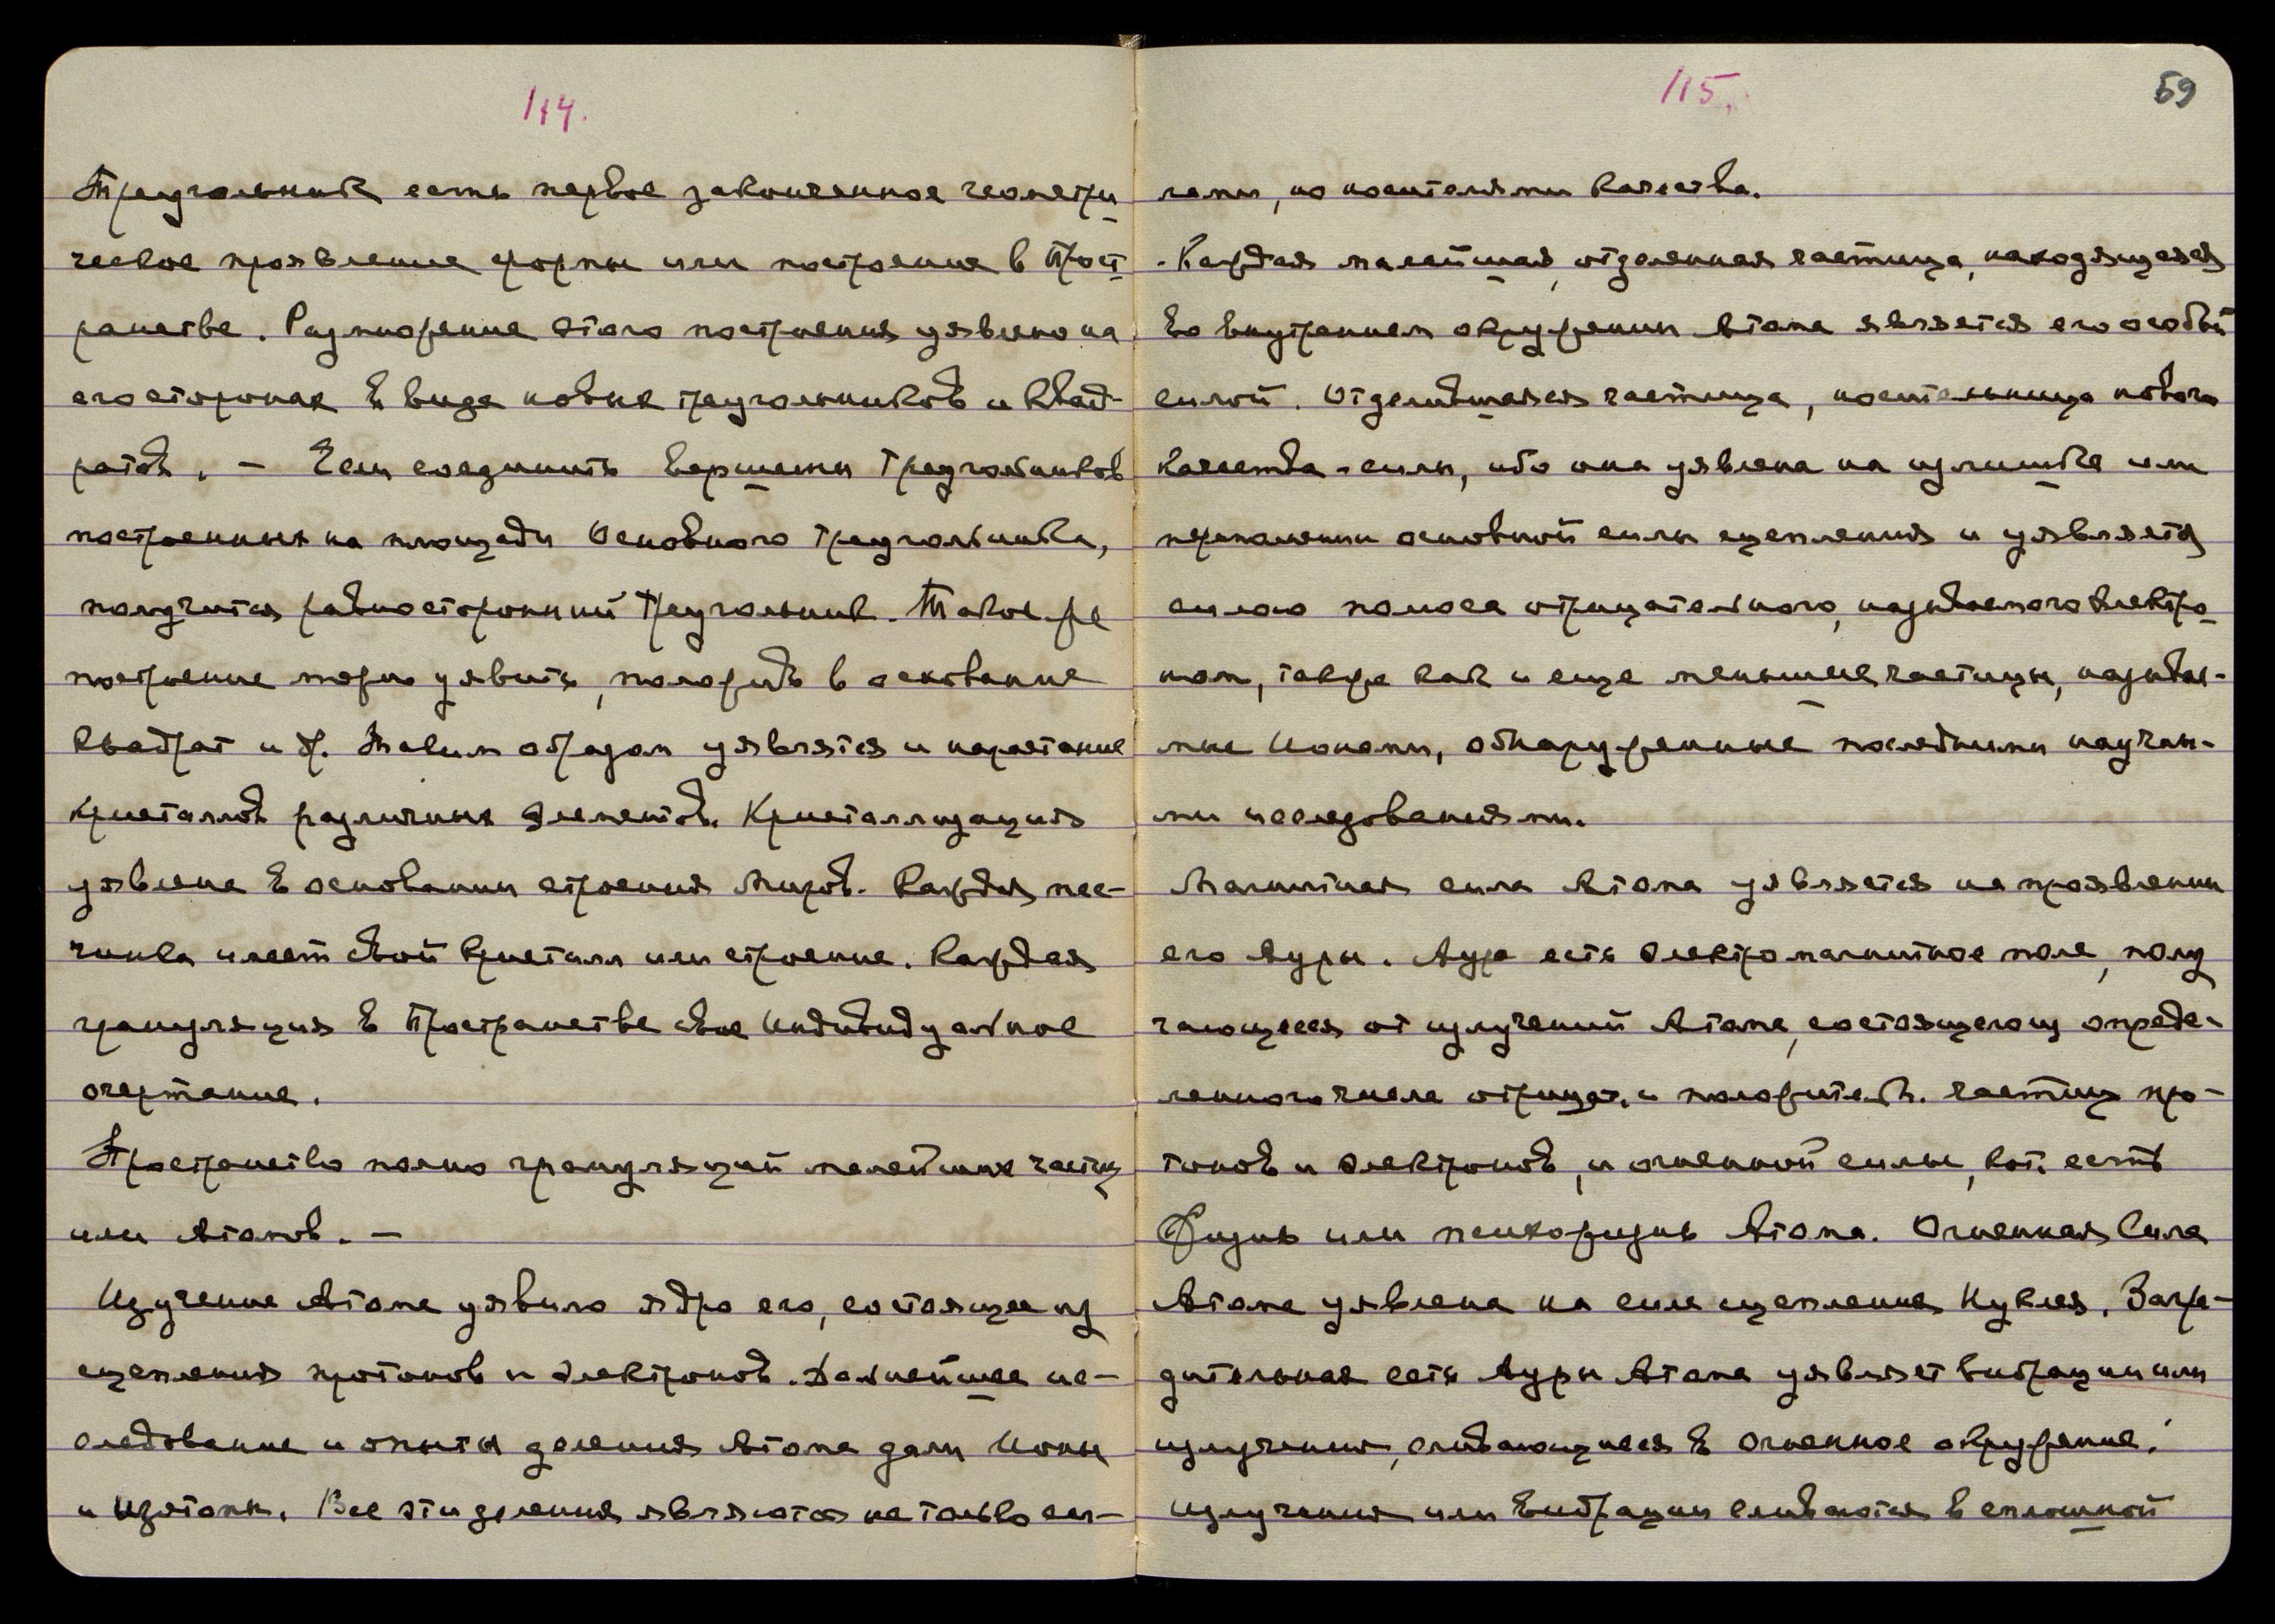 114.
Треугольник есть первое законченное геометри
ческое проявление формы или построения в Прост
ранстве. Размножение этого построения уявлено на
его сторонах в виде новых треугольников и квад-
ратов. – Если соединить вершины треугольников
построенных на площади Основного треугольника,
получится равносторонний треугольник. Такое же
построение можно уявить, положив в основание
квадрат и др. Таким образом уявляется и нарастание
кристаллов различных элементов. Кристаллизация
уявлена в основании строения Миров. Каждая пес-
чинка имеет свой кристалл или строение. Каждая
грануляция в Пространстве свое Индивидуальное
очертание.
Пространство полно грануляций малейших частиц
или Атомов. –
Изучение Атома уявило ядро его, состоящее из
сцепления протонов и электронов. Дальнейшее ис-
следование и опыты деления Атома дали Ионы
и Изотопы. Все эти деления являются не только си-
115. 59
лами, но носителями качества.
Каждая малейшая, отделенная частица, находящаяся
во внутреннем окружении Атома является его особой
силой. Отделившаяся частица, носительница нового
качества-силы, ибо она уявлена на излишке или
переполнении основной силы сцепления и уявляется
силою полюса отрицательного, называемого электро
ном, также как и еще меньшие частицы, называе-
мые Ионами, обнаруженные последними научны-
ми исследованиями.
Магнитная сила Атома уявляется на проявлении
его Ауры. Аура есть электромагнитное поле, полу
чающееся от излучений Атома, состоящего из опреде-
ленного числа отрицат. и положительн. частиц про-
тонов и электронов, и огненной силы, кот. есть
Жизнь или психожизнь Атома. Огненная Сила
Атома уявлена на силе сцепления Нуклея. Загра-
дительная сеть Ауры Атома уявляет вибрации или
излучения, сливающиеся в огненное окружение.
Излучения или вибрации сливаются в сплошной